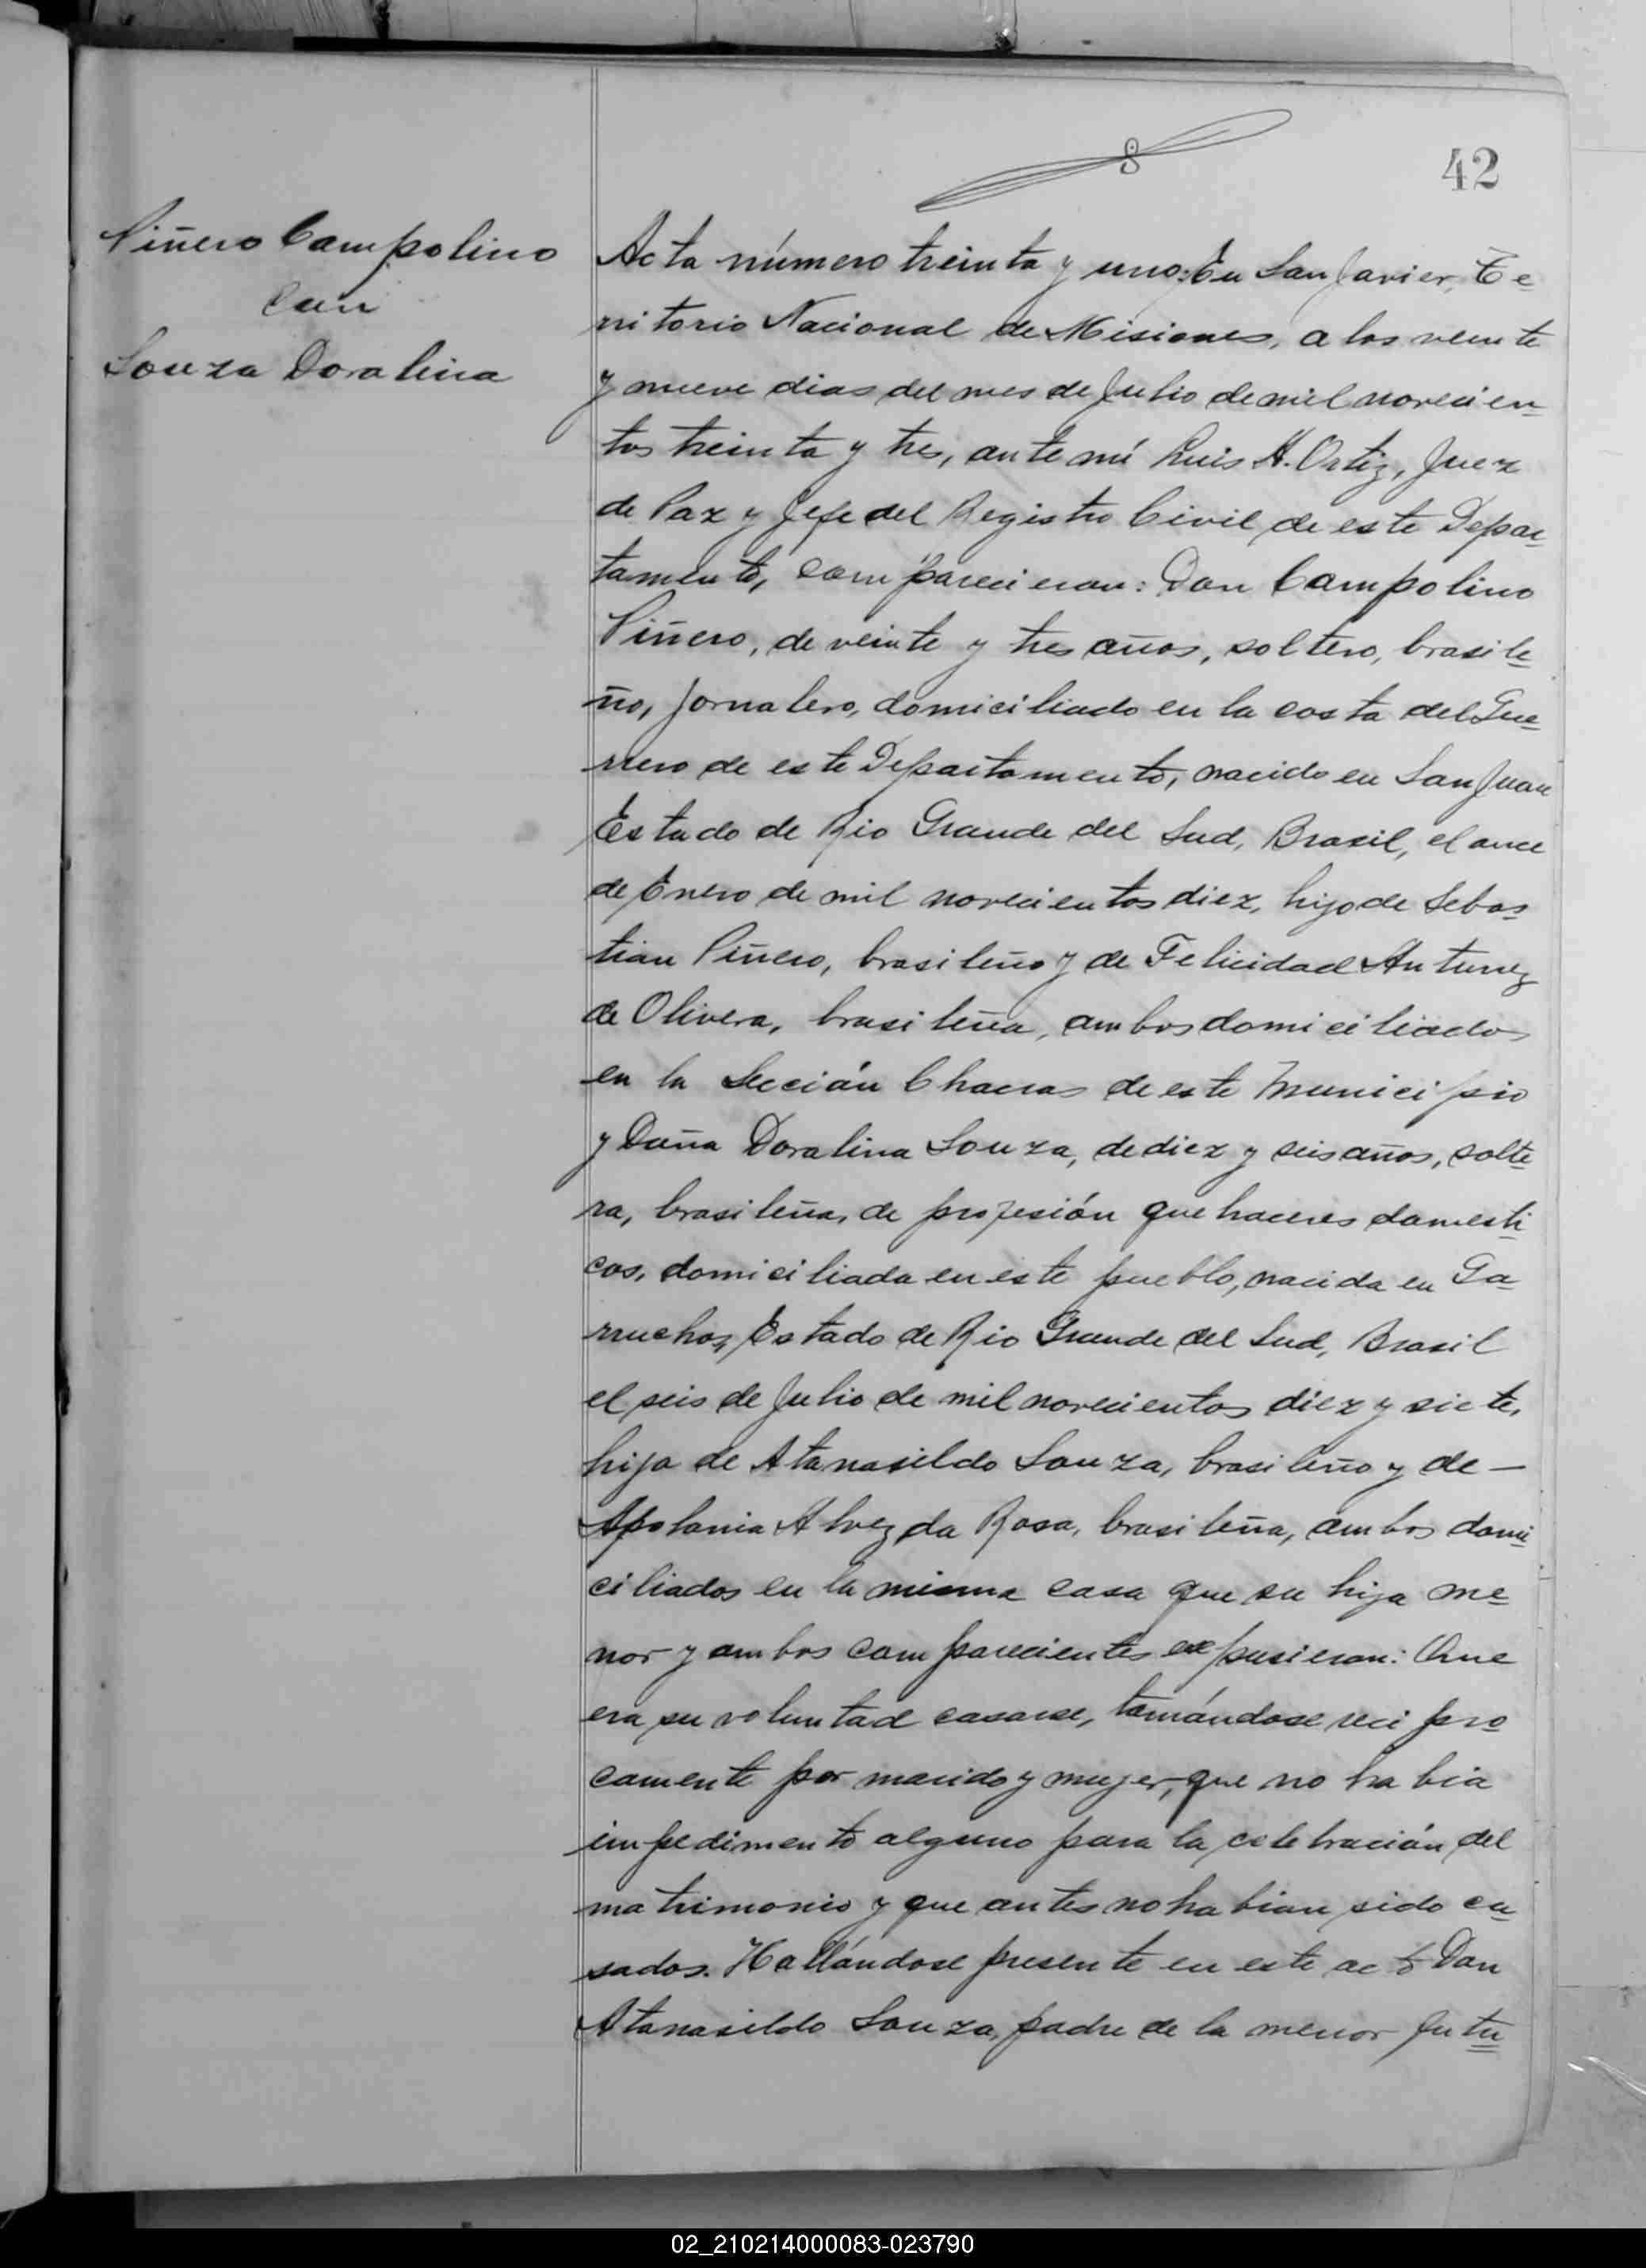 42
Piñero Campolino
con
Souza Doralina
Acta número treinta y uno: En San Javier, Te-
rritorio Nacional de Misiones, a los veinte
y nueve dias del mes de Julio de mil novecien-
tos treinta y tres, ante mí Luis A. Ortiz, Juez
de Paz y Jefe del Registro Civil de este Depar-
tamento, comparecieron: Don Campolino
Piñero, de veinte y tres años, soltero, brasile-
ño, jornalero, domiciliado en la costa del Gue-
rrero de este Departamento, nacido en San Juan
Estado de Rio Grande del Sud, Brasil, el once
de Enero de mil novecientos diez, hijo de Sebas-
tian Piñero, brasileño y de Felicidad Antunez
de Olivera, brasileña, ambos domiciliados
en la Sección Chacras de este Municipio
y Doña Doralina Souza, de diez y seis años, solte-
ra, brasileña, de profesión que haceres domesti-
cos, domiciliada en este pueblo, nacida en Ga-
rruchos, Estado de Rio Grande del Sud, Brasil
el seis de Julio de mil novecientos diez y siete,
hija de Atanasildo Souza, brasileño y de —
Apolonia Alvez da Rosa, brasileña, ambos domi-
ciliados en la misma casa que su hija me-
nor y ambos comparecientes expusieron: Que
era su voluntad casarse, tomándose reci pro-
camente por marido y mujer, que no habia
impedimento alguno para la celebración del
matrimonio y que antes no habian sido ca-
sados. Hallándose presente en este acto Don
Atanasildo Souza, padre de la menor futu-
02_210214000083-023790